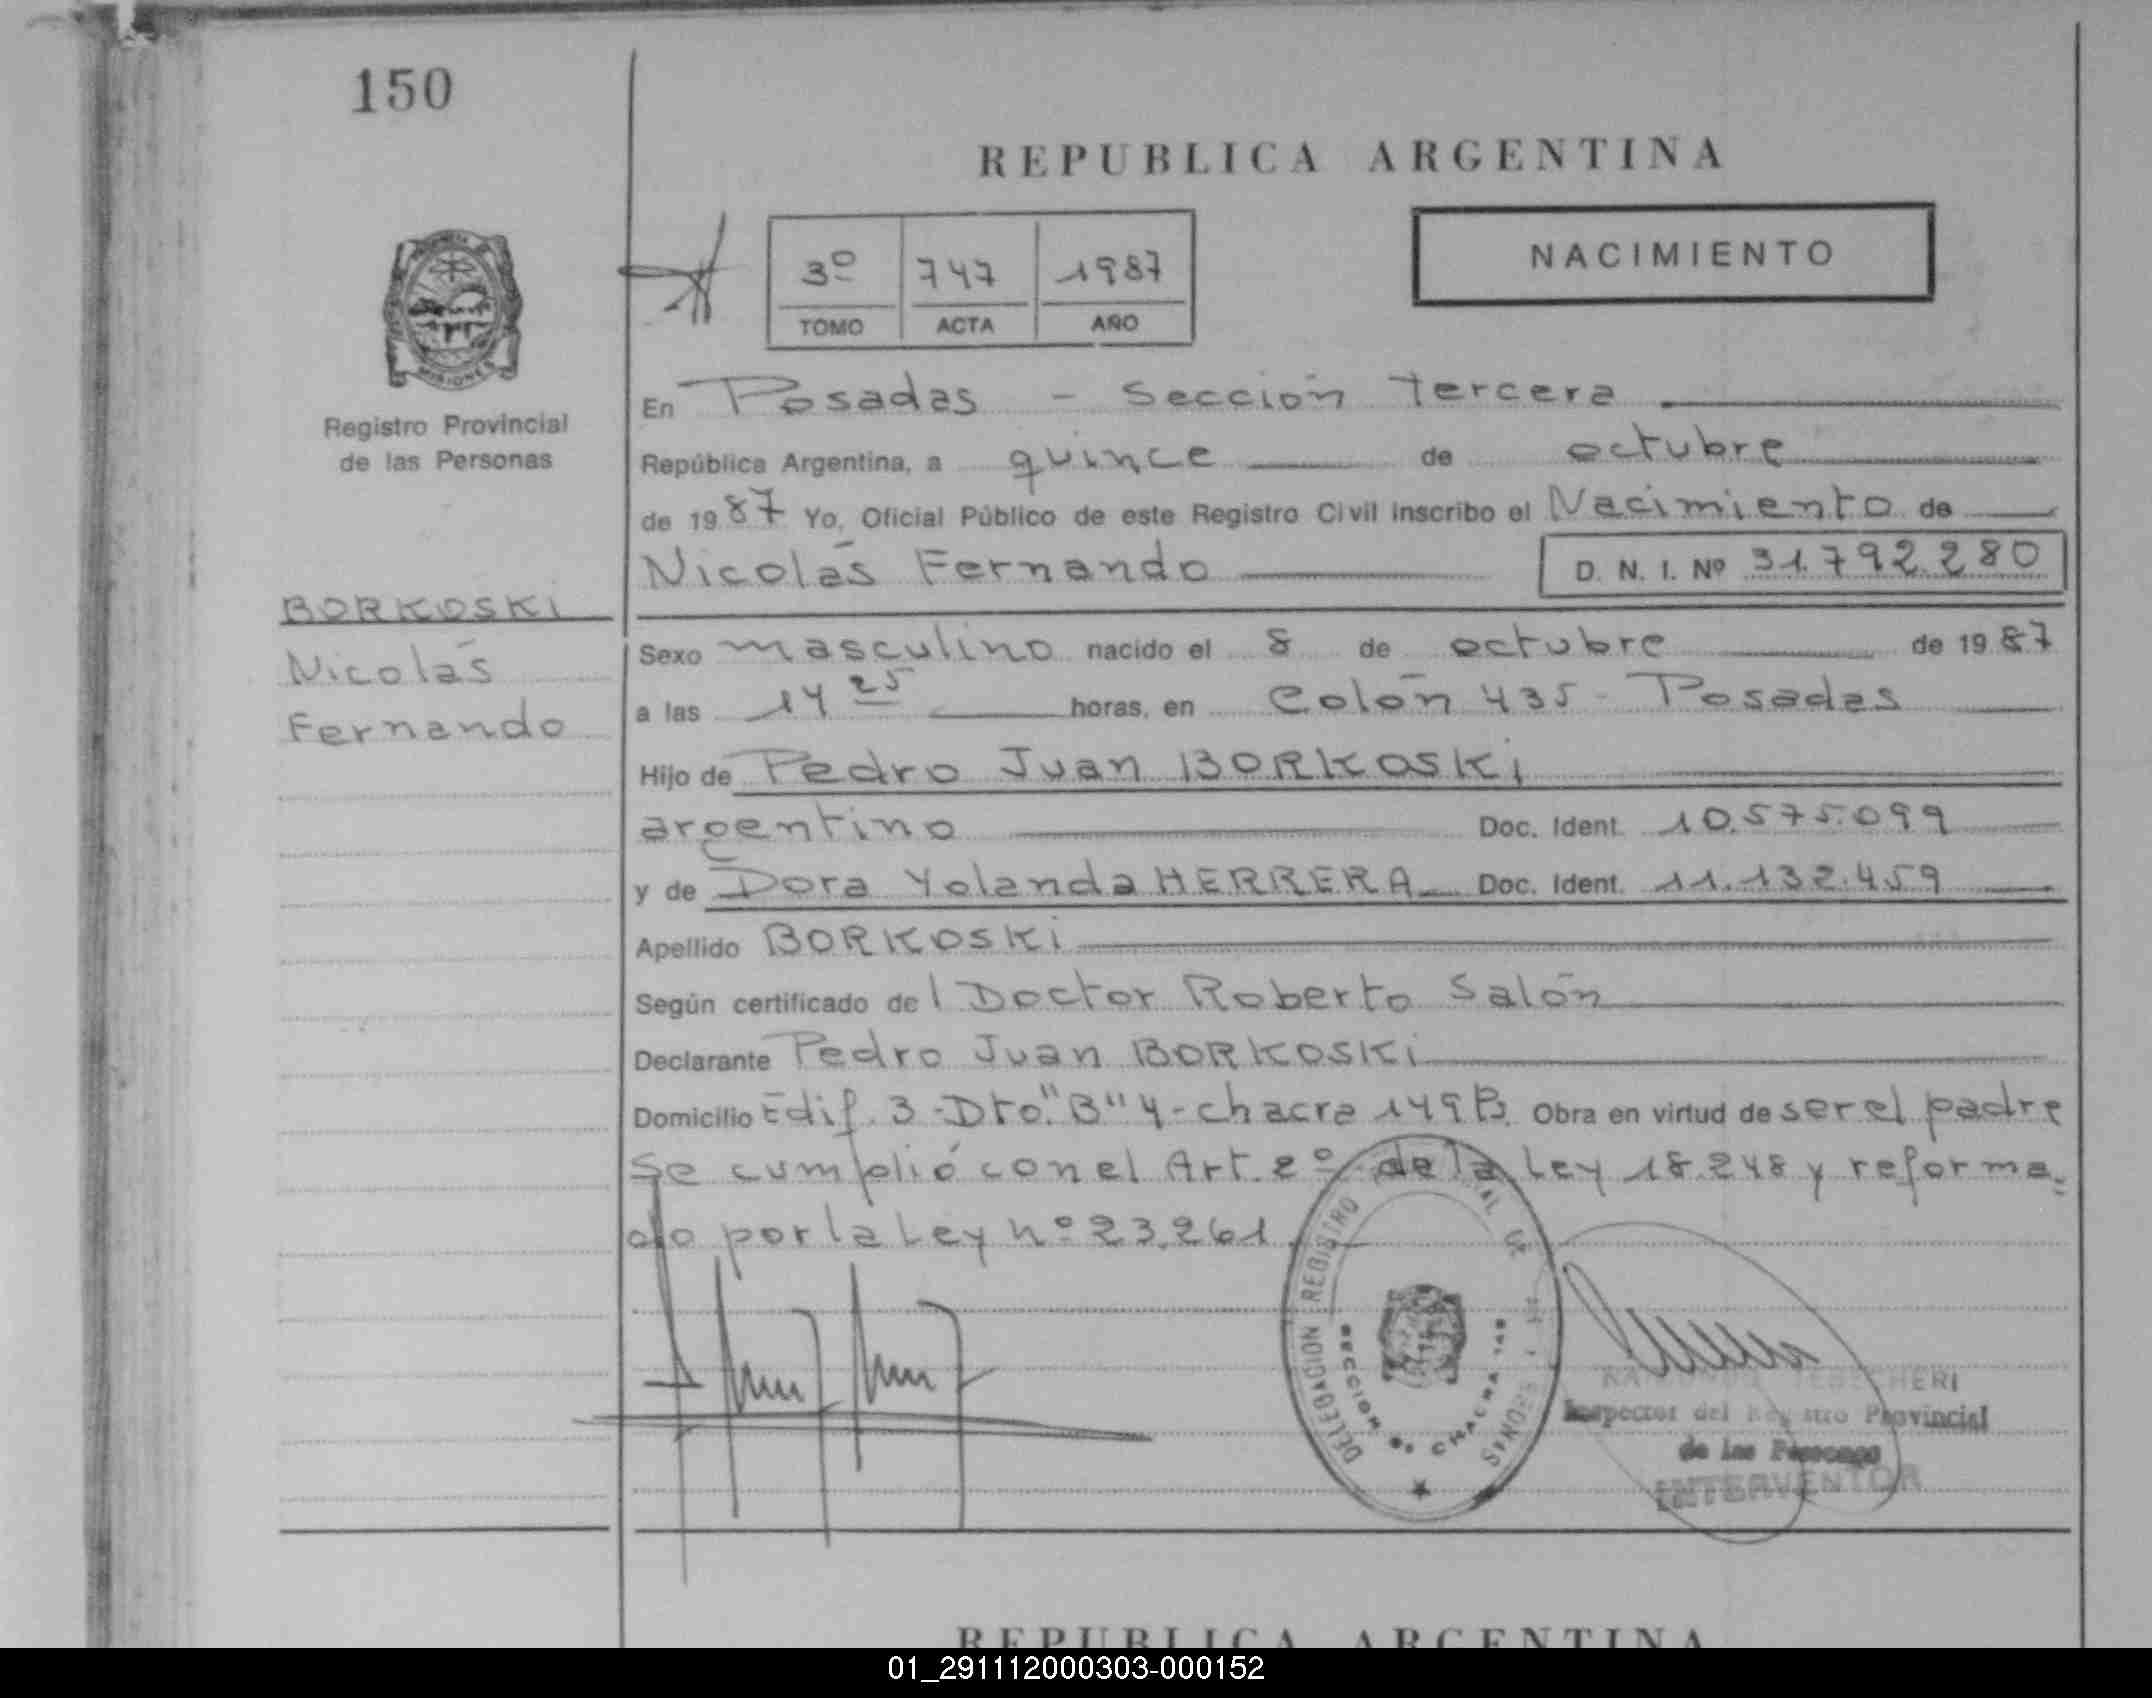 150
REPUBLICA ARGENTINA
3º 747 1987
TOMO ACTA AÑO
NACIMIENTO
MISIONES
Registro Provincial
de las Personas
En Posadas - Sección Tercera
República Argentina, a quince de octubre
de 1987 Yo, Oficial Público de este Registro Civil inscribo el Nacimiento de
Nicolás Fernando D. N. I. Nº 31.792.280
BORKOSKI
Nicolás
Fernando
Sexo masculino nacido el 8 de octubre de 1987
a las 14 25 horas, en Colón 435 - Posadas
Hijo de Pedro Juan BORKOSKI
argentino Doc. Ident. 10.575.099
y de Dora Yolanda HERRERA Doc. Ident. 11.132.459
Apellido BORKOSKI
Según certificado del Doctor Roberto Salón
Declarante Pedro Juan BORKOSKI
Domicilio Edif. 3 - Dto. "B" 4 - chacra 149 Ps. Obra en virtud de ser el padre
Se cumplió con el Art. 2º de la Ley 18.248 y reforma=
do por la Ley nº 23.261.
DELEGACION REGISTRO
SECCION 3ª CHACRA 149
Inspector del Registro Provincial
de las Personas
INTERVENTOR
REPUBLICA ARGENTINA
01_291112000303-000152